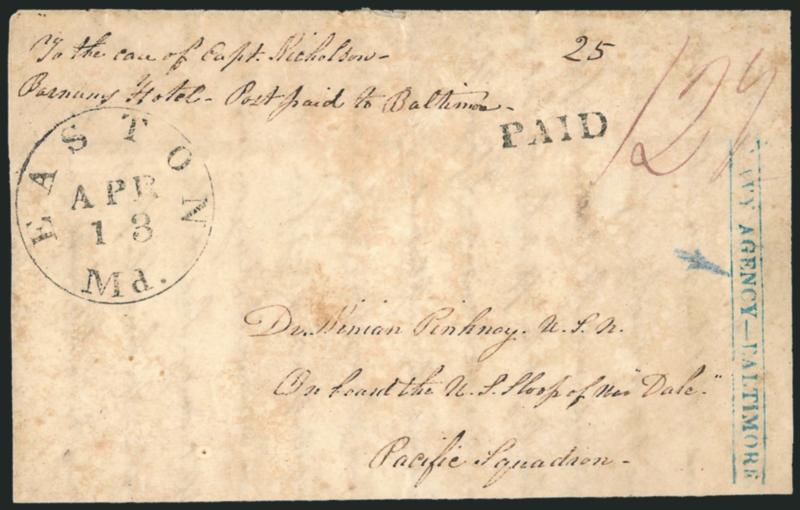 To the care of Capt. Nicholson -
25
Barnums Hotel - Post paid to Baltimore -
PAID
12½
EASTON
APR
13
Md.
NAVY AGENCY—BALTIMORE
Dr. Ninian Pinkney. U. S. N.
On board the U. S. Sloop of War "Dale."
Pacific Squadron -